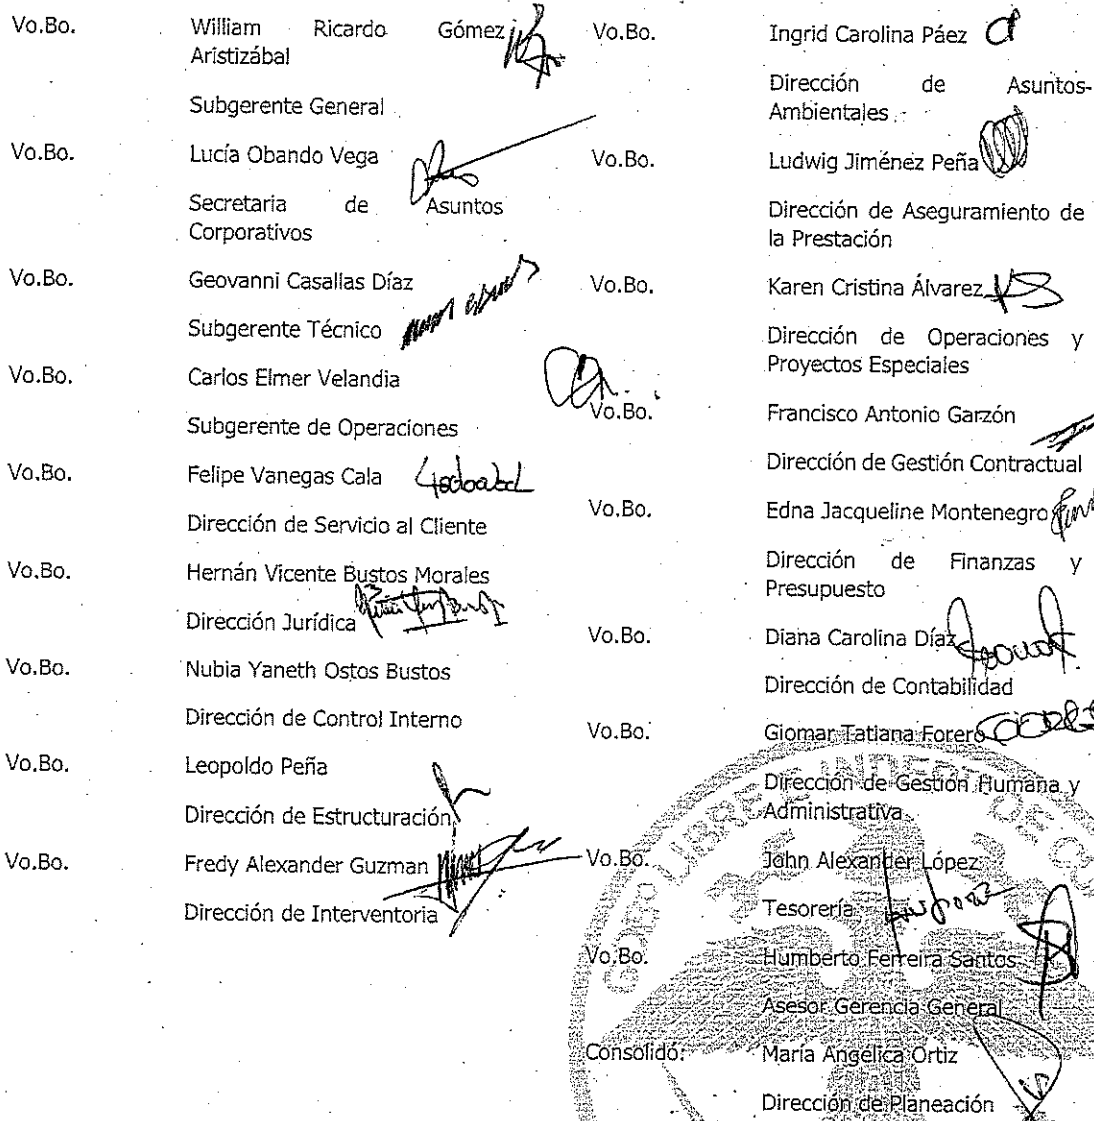 Vo.Bo. William Ricardo Gómez
Aristizábal
Subgerente General
Vo.Bo. Lucía Obando Vega
Secretaria de Asuntos
Corporativos
Vo.Bo. Geovanni Casallas Díaz
Subgerente Técnico
Vo.Bo. Carlos Elmer Velandia
Subgerente de Operaciones
Vo.Bo. Felipe Vanegas Cala
Dirección de Servicio al Cliente
Vo.Bo. Hernán Vicente Bustos Morales
Dirección Jurídica
Vo.Bo. Nubia Yaneth Ostos Bustos
Dirección de Control Interno
Vo.Bo. Leopoldo Peña
Dirección de Estructuración
Vo.Bo. Fredy Alexander Guzman
Dirección de Interventoria
Vo.Bo. Ingrid Carolina Páez
Dirección de Asuntos
Ambientales
Vo.Bo. Ludwig Jiménez Peña
Dirección de Aseguramiento de
la Prestación
Vo.Bo. Karen Cristina Álvarez
Dirección de Operaciones y
Proyectos Especiales
Vo.Bo. Francisco Antonio Garzón
Dirección de Gestión Contractual
Vo.Bo. Edna Jacqueline Montenegro
Dirección de Finanzas y
Presupuesto
Vo.Bo. Diana Carolina Díaz
Dirección de Contabilidad
Vo.Bo. Giomar Tatiana Forero
Dirección de Gestión Humana y
Administrativa
Vo.Bo. John Alexander López
Tesorería
Vo.Bo. Humberto Ferreira Santos
Asesor Gerencia General
Consolidó: María Angélica Ortiz
Dirección de Planeación